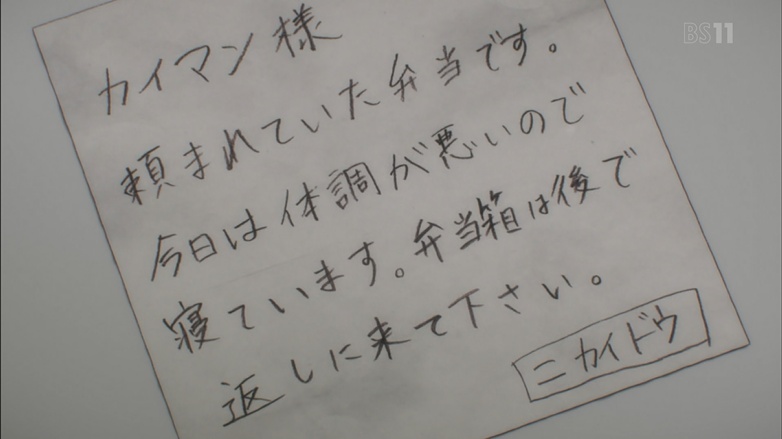 BS11
カイマン様
頼まれていた弁当です。
今日は体調が悪いので
寝ています。弁当箱は後で
返しに来て下さい。
ニカイドウ